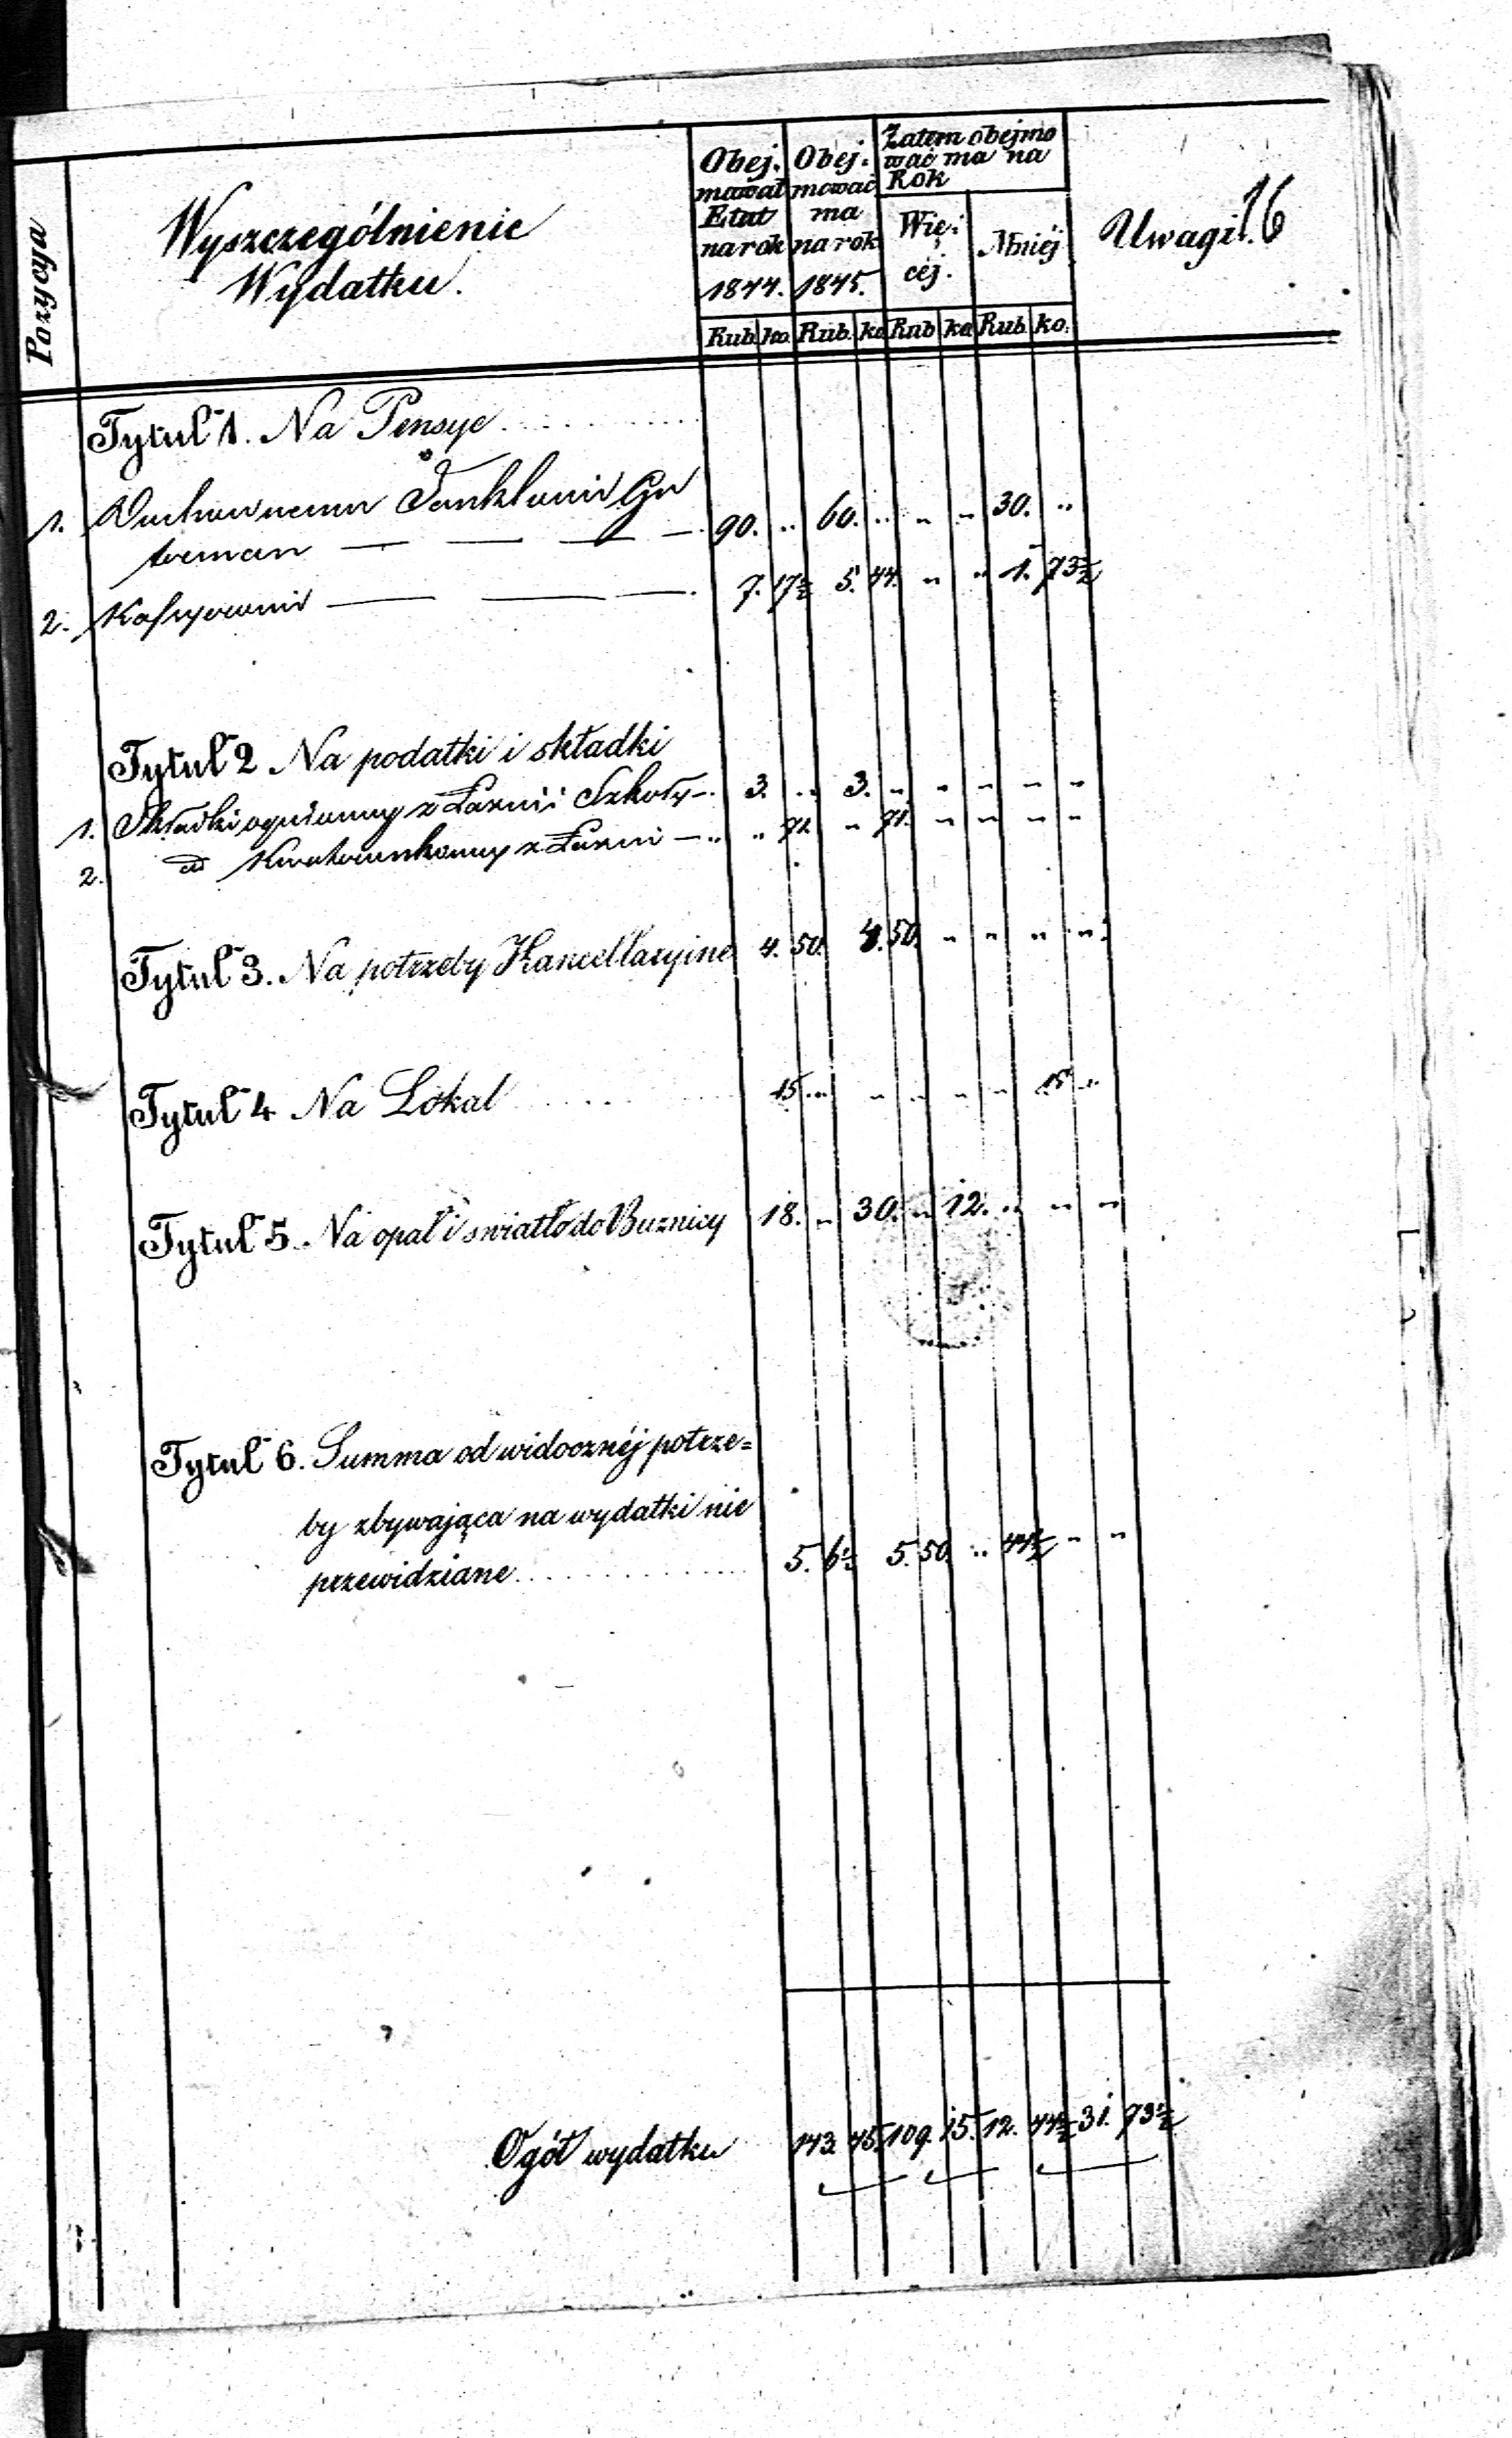 16
Pozycya
Wyszczególnienie
Wydatku.
Obej.
mował
Etat
na rok
1844.
Obej:
mować
ma
na rok
1845.
Zatem obejmo
wać ma na
Rok
Wię:
céj.
Mniéj
Uwagi.
Rub. ko. Rub. ko Rub ko Rub. ko.
Tytuł 1. Na Pensye
1. Duchownemu Jankklowi Gu
terman 90. " 60. " " " 30. "
2. Kassyerowi 7. 17½ 5. 44. " " 1. 73½
Tytuł 2 Na podatki i składki
1. Składki ogniowey z Łazni i Szkoły 3. " 3. " " " " "
2. do Kwaterunkowey z Łazni " 71. " 71. " " " "
Tytuł 3. Na potrzeby Kancellaryine 4. 50. 4. 50. " " " "
Tytuł 4 Na Lokal 15. " " " " " 15 "
Tytuł 5. Na opał i swiatło do Buznicy 18. " 30. " 12. " " "
Tytuł 6. Summa od widocznéj potrze=
by zbywająca na wydatki nie
przewidziane 5. 6½ 5. 50 " 44½ " "
Ogół wydatku 143. 45. 109. 15. 12. 44½ 31. 73½